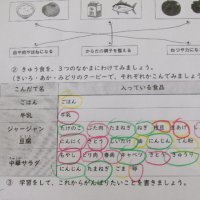 血や肉やほねになる
からだの調子を整える
ねつや力になる
② きゅう食を、３つのなかまにわけてみましょう。
（きいろ・あか・みどりのクーピーで、それぞれかこんでみましょう）
こんだて名
入っている食品
ごはん
ごはん
牛乳
牛乳
ジャージャン
豆腐
たけのこ ぶた肉 たまねぎ ねぎ
にんにく にんじん
中華サラダ
もやし とり肉 春雨 キャベツ きゅうり
にんじん たまねぎ ごま
③ 学習をして、これからがんばりたいことを書きましょう。